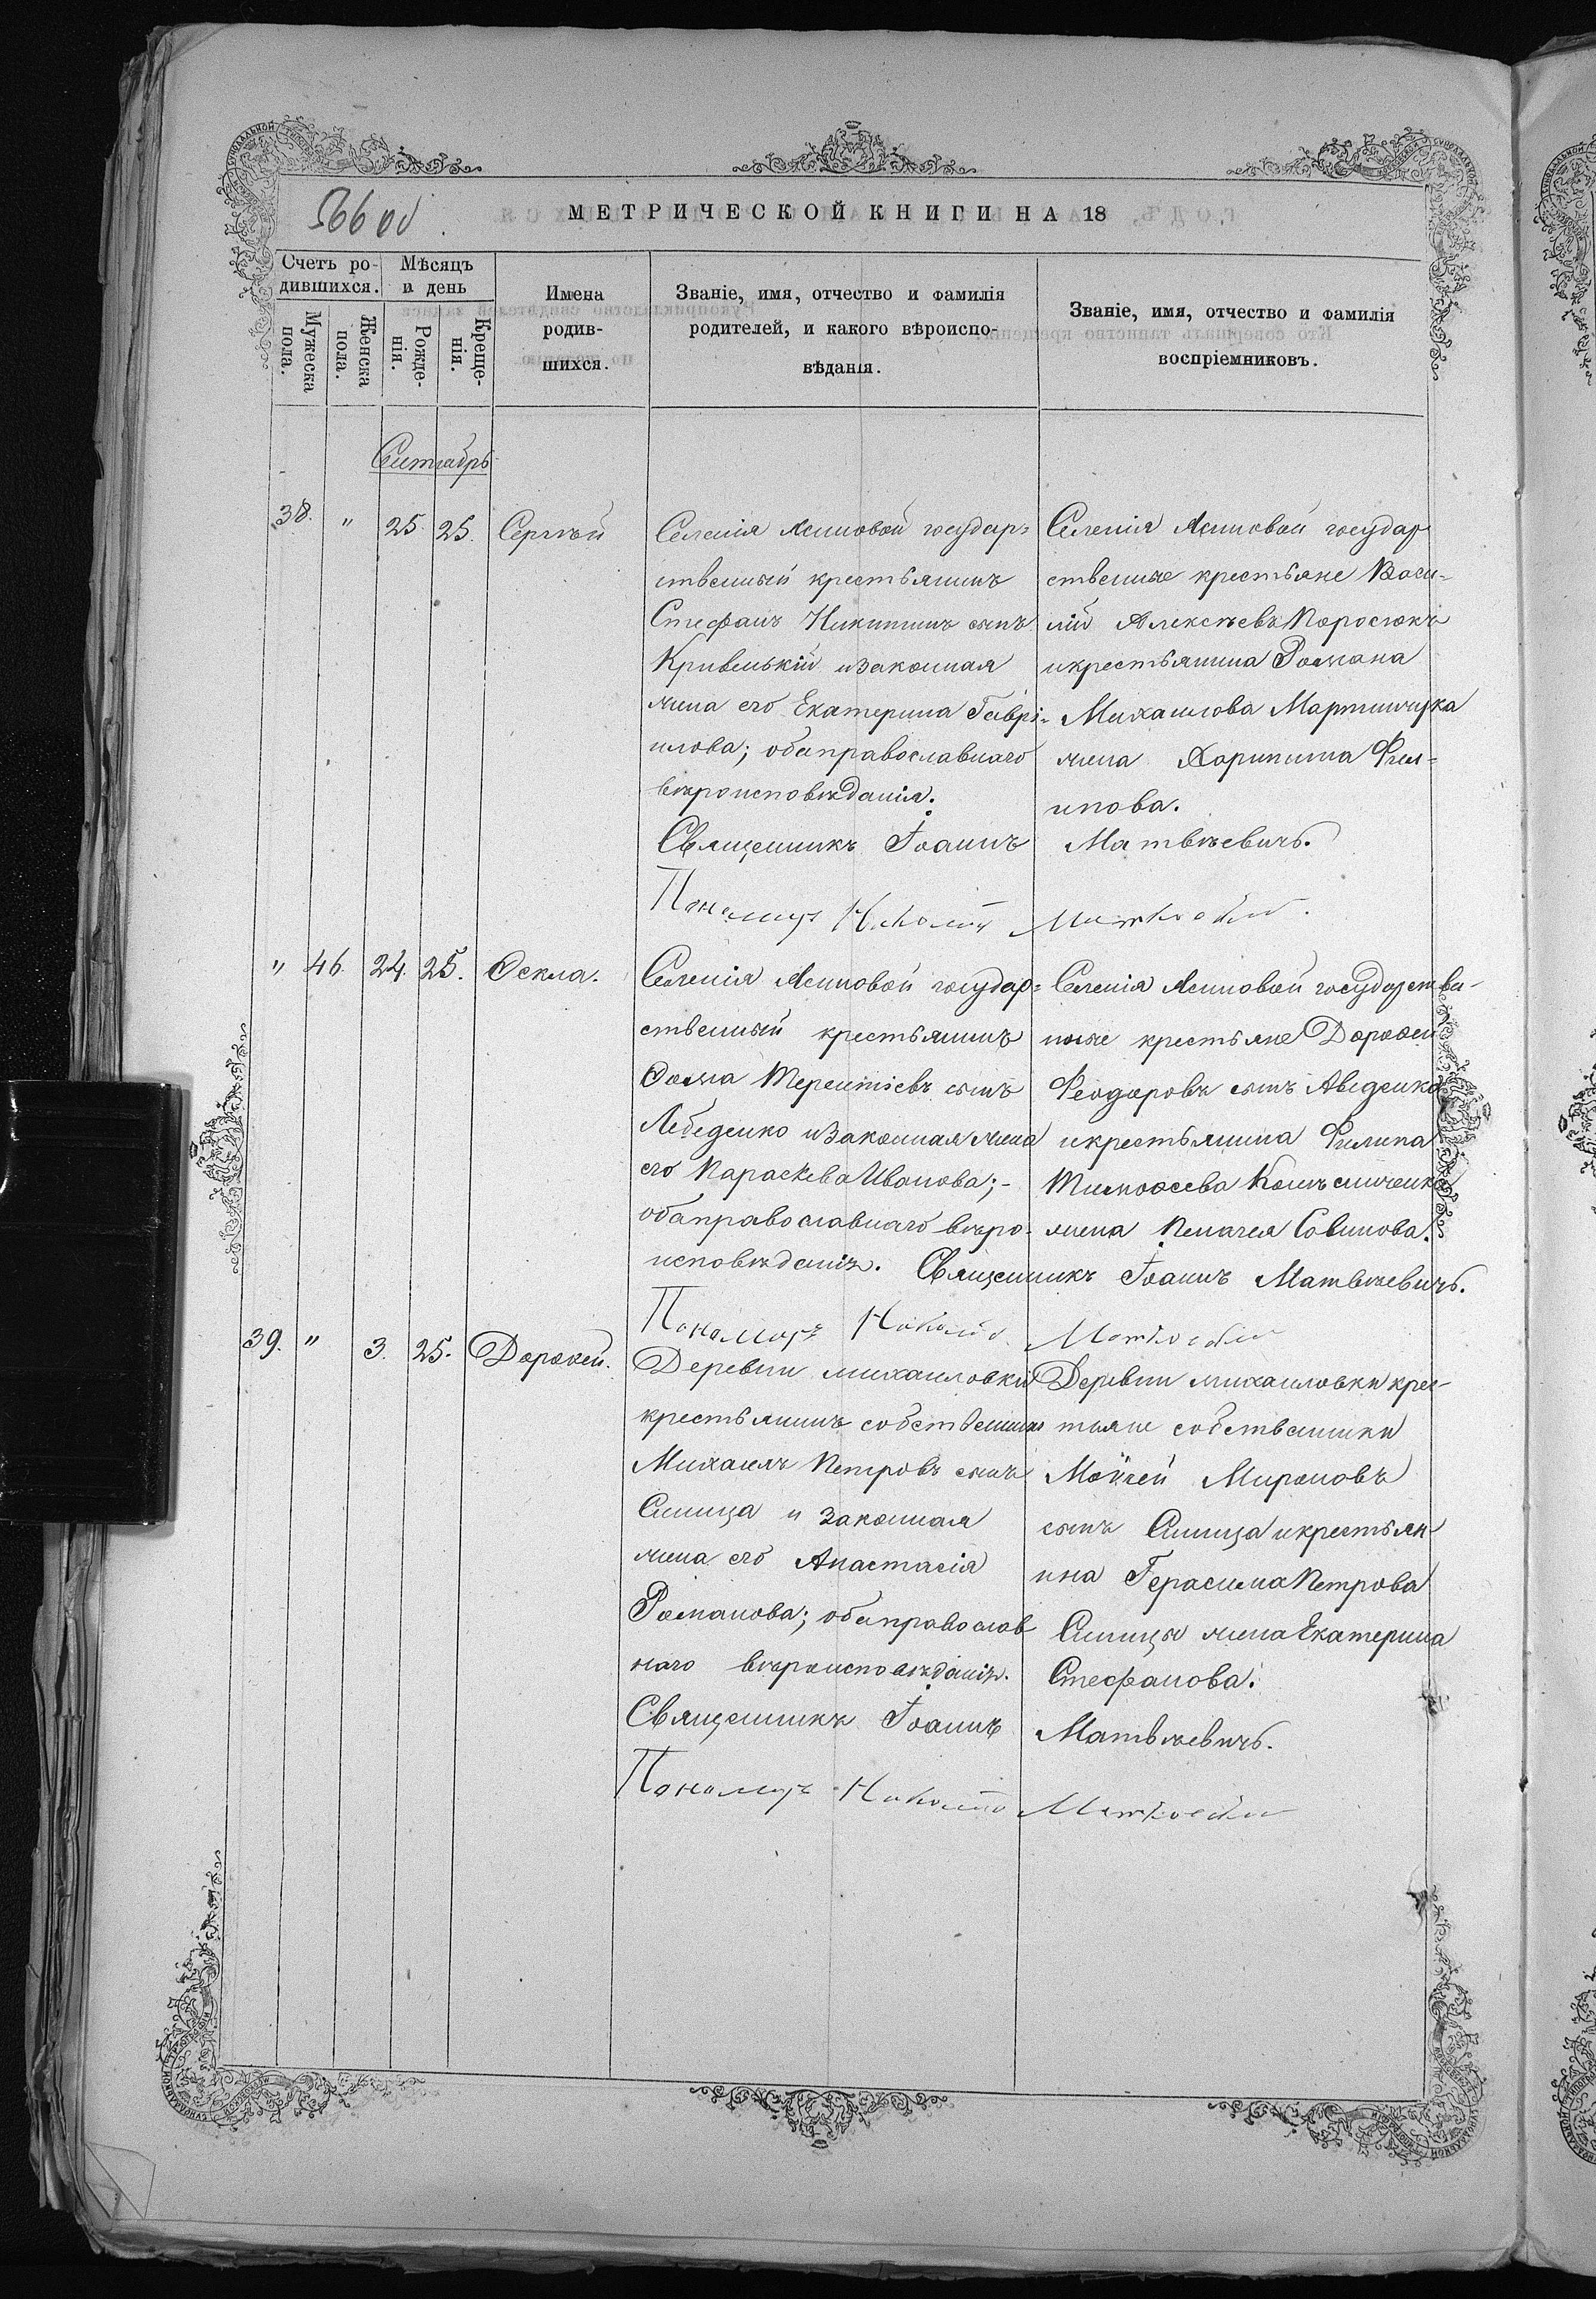 566 об.
МЕТРИЧЕСКОЙ КНИГИ НА 18
Счетъ ро-
дившихся.
Мѣсяцъ
и день
Мужеска
пола.
Женска
пола.
Рожде-
нія.
Креще-
нія.
Имена
родив-
шихся.
Званіе, имя, отчество и фамилія
родителей, и какого вѣроиспо-
вѣданія.
Званіе, имя, отчество и фамилія
воспріемниковъ.
Сентябрь
38. " 25. 25. Сергѣй
Селенія Ясиновой государ=
ственный крестьянинъ
Стефанъ Никитинъ сынъ
Кривенькій и законная
жена его Екатерина Гаврі-
илова; оба православнаго
вѣроисповѣданія.
Священникъ Іоаннъ
Пономарь Николай
Селенія Ясиновой государ
ственные крестьяне Васи=
лій Алексѣевъ Поросюкъ
и крестьянина Романа
Михаилова
жена Харитина Фил=
ипова.
Матвѣевичъ.
" 46. 24. 25. Ѳекла.
Селенія Ясиновой государ=
ственный крестьянинъ
Ѳома Терентіевъ сынъ
Лебеденко и законная жена
его Параскева Иванова;-
оба православнаго вѣро-
исповѣданія. Священникъ Іоаннъ Матвѣевичъ.
Пономарь Николай
Селенія Ясиновой государстве-
нные крестьяне Дороѳей
Феодоровъ сынъ Авдеенко
и крестьянина Филипа
Тимоѳеева
жена Пелагея Савинова.
39. " 3. 25. Дороѳей.
Деревни Михаиловки
крестьянинъ собственникъ
Михаилъ Петровъ сынъ
Синица и законная
жена его Анастасія
Романова; оба православ
наго вѣроисповѣданія.
Священникъ Іоаннъ
Пономарь Николай
Деревни Михаиловки крес-
тьяне собственники
Моѵсей Мироновъ
сынъ Синица и крестьян
ина Герасима Петрова
Синицы жена Екатерина
Стефанова.
Матвѣевичъ.